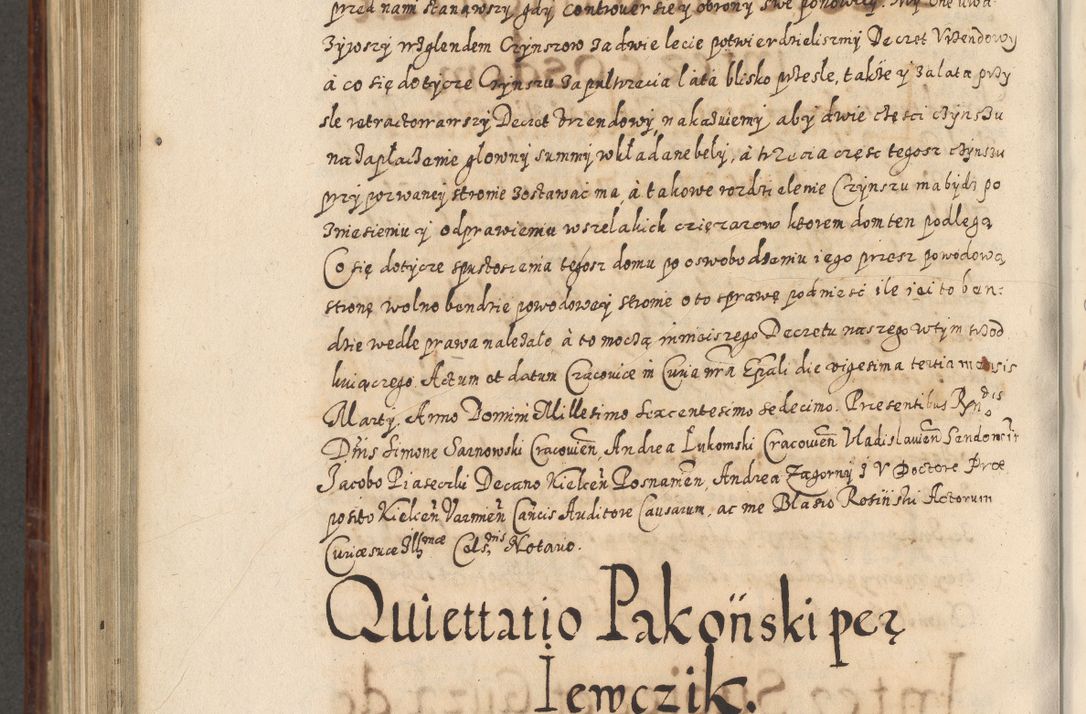 przed nami stanąwszy gdy controversie y obrony swe ponowiły. My one uwa:
żywszy względem Czynszow za dwie lecie potwierdzieliszmy Decret Vrzendowy
à co się dotycze Czynszu za pułtrzecia lata blisko przesłe, także y za lata przy
słe retractowawszy Decret Vrzendowy, nakazuiemy, aby dwie części czynszu
na zapłaczenie głowny summy wkładane beły, à trzecia częsc tegosz czynszu
przy pozwaney stronie zostawać ma, à takowe rozdzielenie Czynszu ma bydz po
zniesieniu y odprawieniu wszelakich cięzarow ktorem dom ten podlega
Co się dotycze spustoszenia tegosz domu po oswobodzeniu iego przesz powodową
stronę wolno bendzie powodowey stronie o to sprawę podniesć ile iei to ben:
dzie wedle prawa nalezało à to moczą ninieiszego Decretu naszego w tym trzod
kuiączego. Actum et datum Cracoviæ in Curia nrã Epãli die vigesima tertia mensis
Martÿ, Anno Domini Millesimo Sexcentesimo sedecimo. Præsentibus Rñdis
Dñis Simone Sarnowski Cracovień, Andrea Łukomski Cracovień Vladislavień Sendomir
Jacobo Piaseczki Decano Kielceñ Posnanień, Andrea Zagorny I V Doctore Præ
posito Kielceñ Varmień Cañcis Auditore Causarum, ac me Blasio Rosiński Actorum
Curiæ suæ Illmæ Celsnis Notario.
Quiettatio Pakoński per
Iewczik.